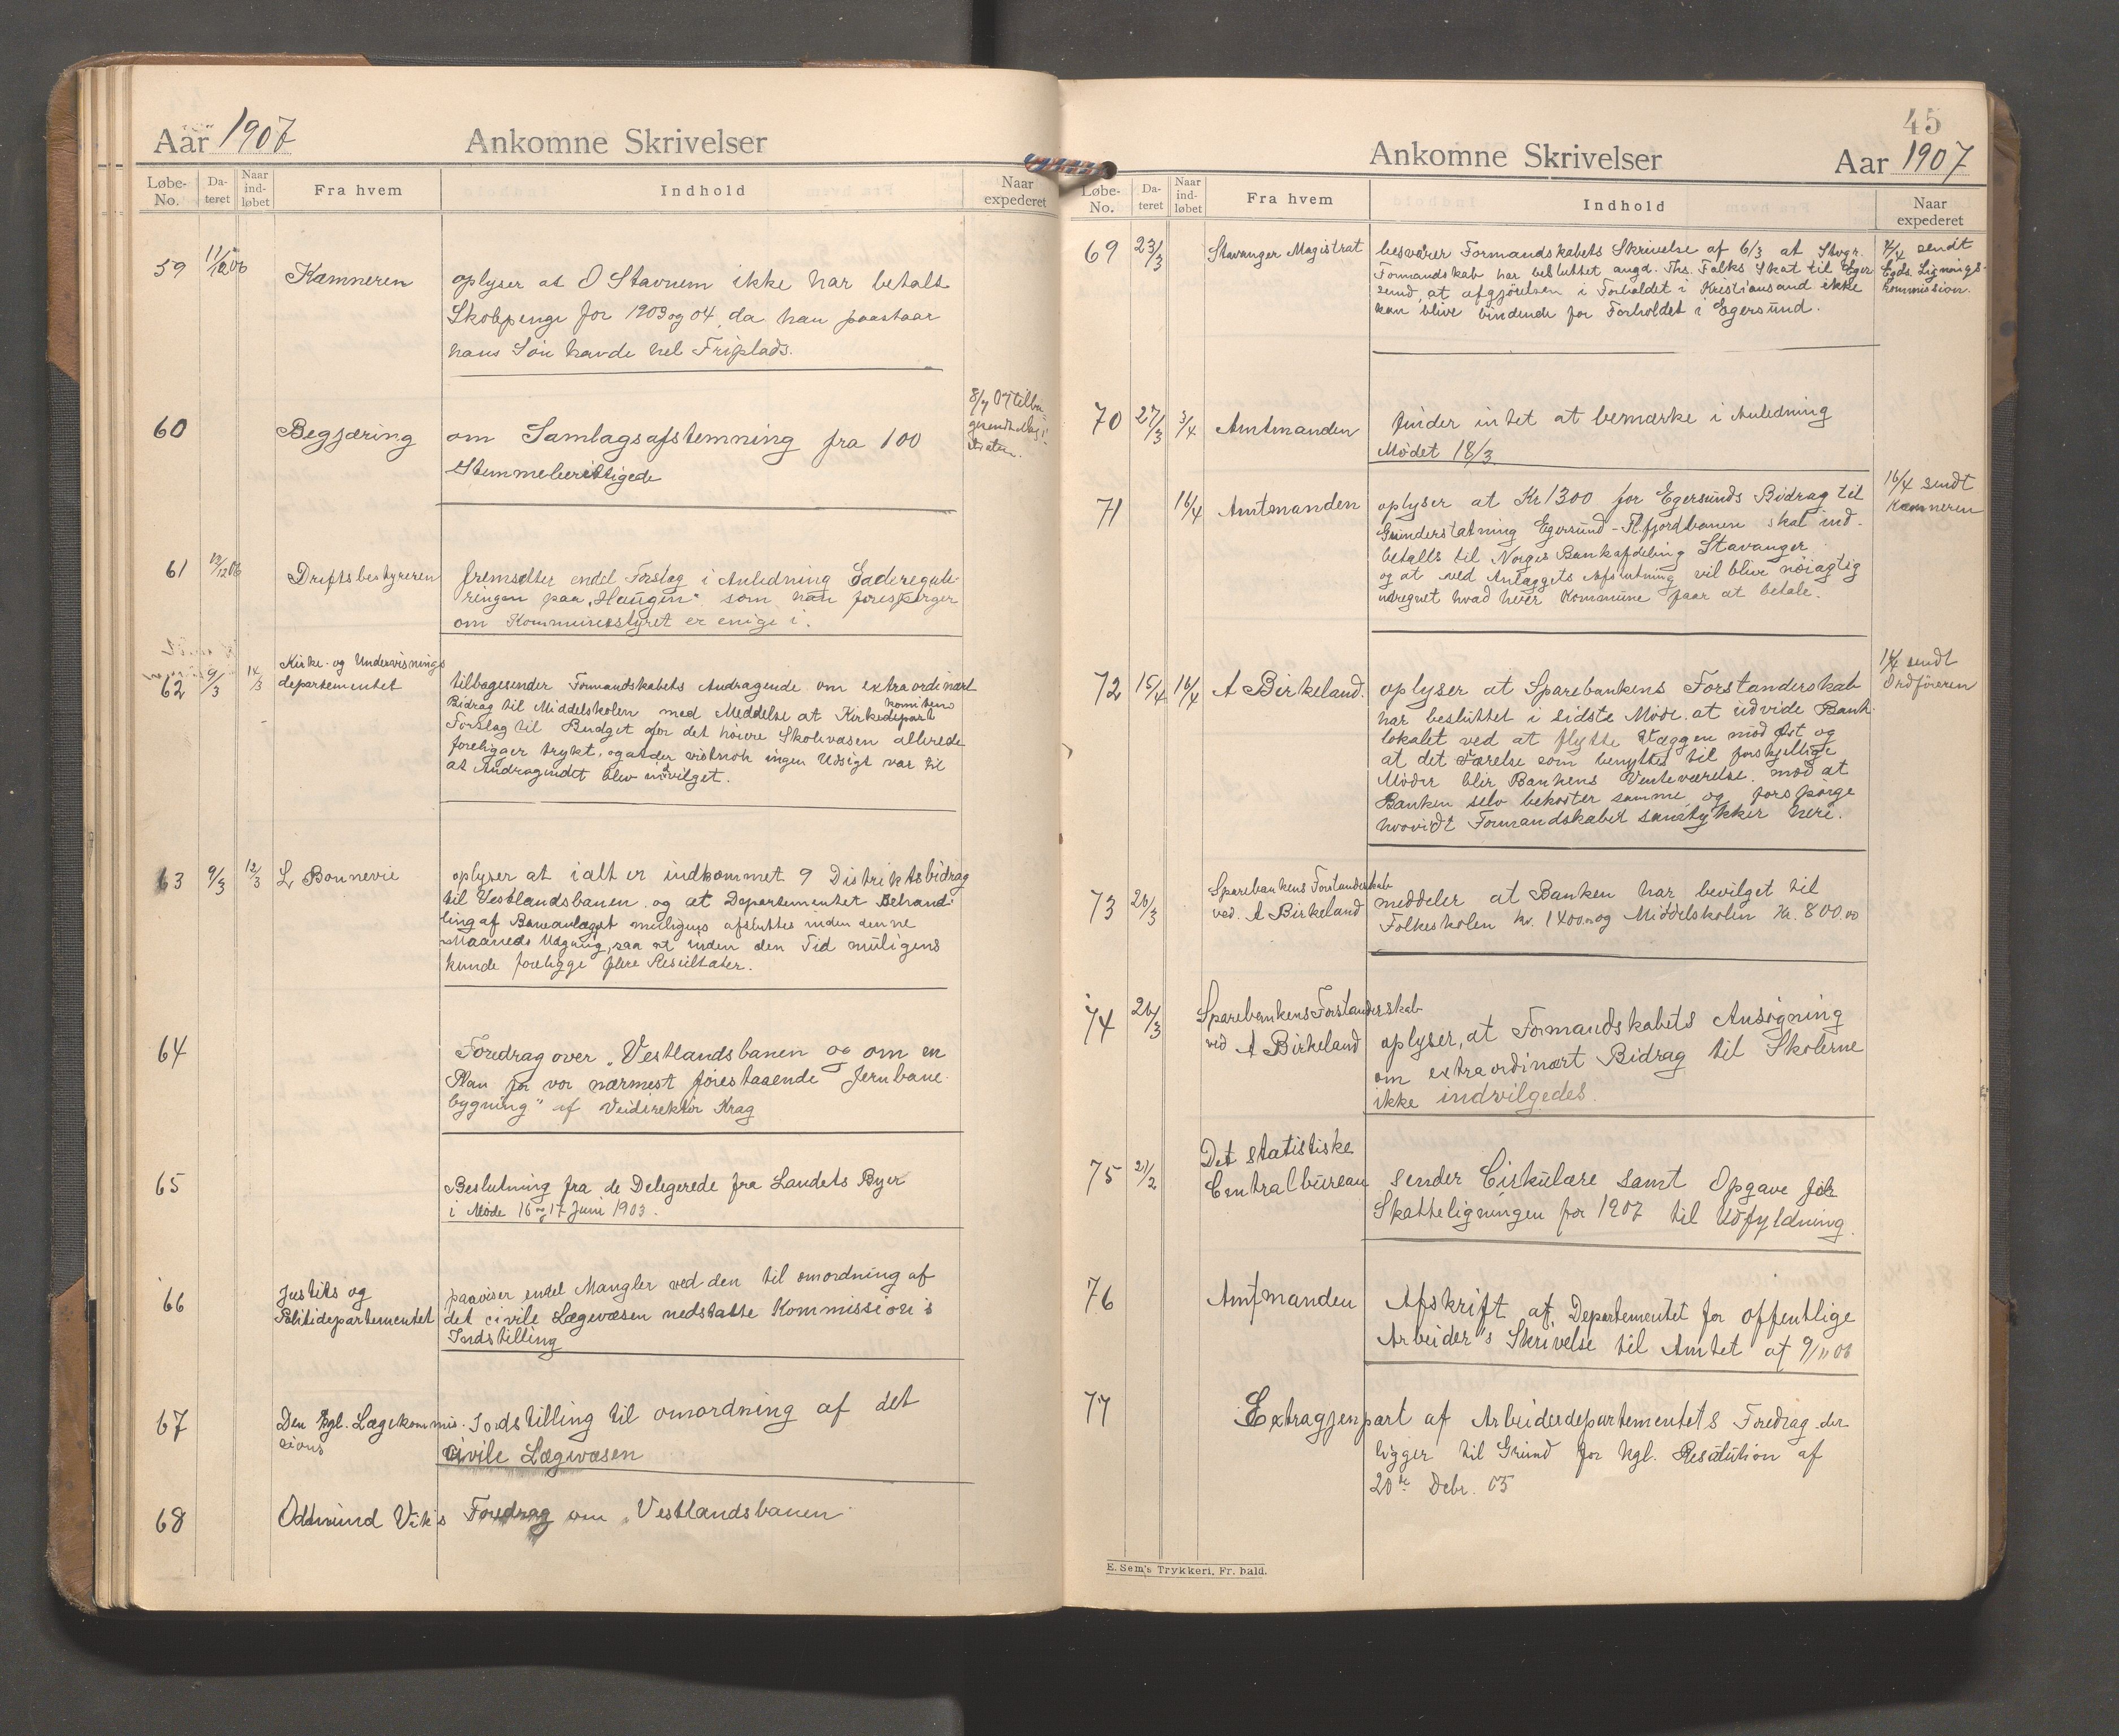 Aar 1907 Ankomne Skrivelser
Løbe-No. Da-teret Naar ind-løbet Fra hvem Indhold Naar expederet
59 11/12 06 Kæmneren oplyser at O Stavnem ikke har betalt
Skolepenge for 1903 og 04, da han paastaar
hans Søn havde hel Friplads.
60 Begjæring om Samlagsafstemning fra 100
Stemmeberettigede
8/4 07 tilba-
61 12/12 06 Driftsbestyreren fremsætter endel Forslag i Anledning Gaderegule-
ringen paa "Haugen" som han forespørger
om Kommunestyret er enige i.
62 9/3 14/3 Kirke- og Undervisnings
departementet tilbagesender Formandskabets Andragende om extraordinært
Bidrag til Middelskolen med Meddelse at Kirkedepart
Forslag til Budget for det høiere Skolevæsen allerede
foreligger trykt, og at der vistnok ingen Udsigt var til
at Andragendet blev indvilget.
63 9/3 12/3 L Bonnevie oplyser at ialt er indkommet 9 Distriktsbidrag
til Vestlandsbanen, og at Departementet Behand-
ling af Baneanlæget muligens afsluttes inden denne
Maaneds Udgang, saa at inden den Tid muligens
kunde foreligge flere Resultater.
64 Foredrag over "Vestlandsbanen og om en
Plan for vor nærmest forestaaende Jernbane-
bygning" af Veidirektør Krag
65 Beslutning fra de Delegerede fra Landets Byer
i Møde 16 og 17 Juni 1903.
66 Justits og
Politidepartementet paaviser endel Mangler ved den til omordning af
det civile Lægevæsen nedsatte Kommission's
Indstilling
67 Den kgl. Lægekommis-
sions Indstilling til omordning af det
civile Lægevæsen
68 Oddmund Vik's Foredrag om "Vestlandsbanen"
45
Ankomne Skrivelser Aar 1907
Løbe-No. Da-teret Naar ind-løbet Fra hvem Indhold Naar expederet
69 23/3 Stavanger Magistrat besvarer Formandskabets Skrivelse af 6/3 at Stvgr.
Formandskab har besluttet angd. Ths. Falks Skat til Eger-
sund, at afgjørelsen i Forholdet i Kristiansand ikke
kan blive bindende for Forholdet i Egersund.
4/4 sendt
Egds. Lignings-
kommission.
70 27/3 3/4 Amtmanden finder intet at bemærke i Anledning
Mødet 18/3
71 16/4 Amtmanden oplyser at Kr 1300 for Egersunds Bidrag til
Grunderstatning Egersund-Fl.fjordbanen skal ind-
betalls til Norges Bankafdeling Stavanger
og at ved Anlæggets Afslutning vil blive nøiagtig
udregnet hvad hver Kommune faar at betale.
16/4 sendt
Kæmneren
72 15/4 16/4 A Birkeland. oplyser at Sparebankens Forstanderskab
har besluttet i sidste Møde at udvide Bank-
lokalet ved at flytte Væggen mod Øst og
at det Værelse som benyttes til forskjellige
Møder blir Bankens Venteværelse, mod at
Banken selv bekoster samme, og forspørge
hvorvidt Formandskabet samtykker heri.
16/4 sendt
Ordføreren
73 26/3 Sparebankens Forstanderskab
ved A Birkeland meddeler at Banken har bevilget til
Folkeskolen kr. 1400.00 og Middelskolen Kr. 800.00
74 26/3 Sparebankens Forstanderskab
ved A Birkeland oplyser, at Formandskabets Ansøgning
om extraordinært Bidrag til Skolerne
ikke indvilgedes.
75 21/2 Det statistiske
Centralbureau sender Cirkulære samt Opgave for
Skatteligningen for 1907 til Udfyldning.
76 Amtmanden Afskrift af Departementet for offentlige
Arbeider"s Skrivelse til Amtet af 9/11 06
77 Extragjenpart af Arbeidsdepartementets Foredrag der
ligger til Grund for kgl. Resolution af
20de Debr. 05
E. Sem's Trykkeri, Fr.hald.